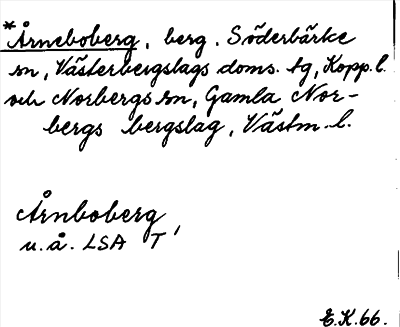 *Årneboberg, berg. Söderbärke
sn, Västerbergslags doms. tg, Kopp. l.
och Norbergs sn, Gamla Nor-
bergs bergslag, Västm. l.
Årnboberg,
u. å. LSA T
E.K.66.